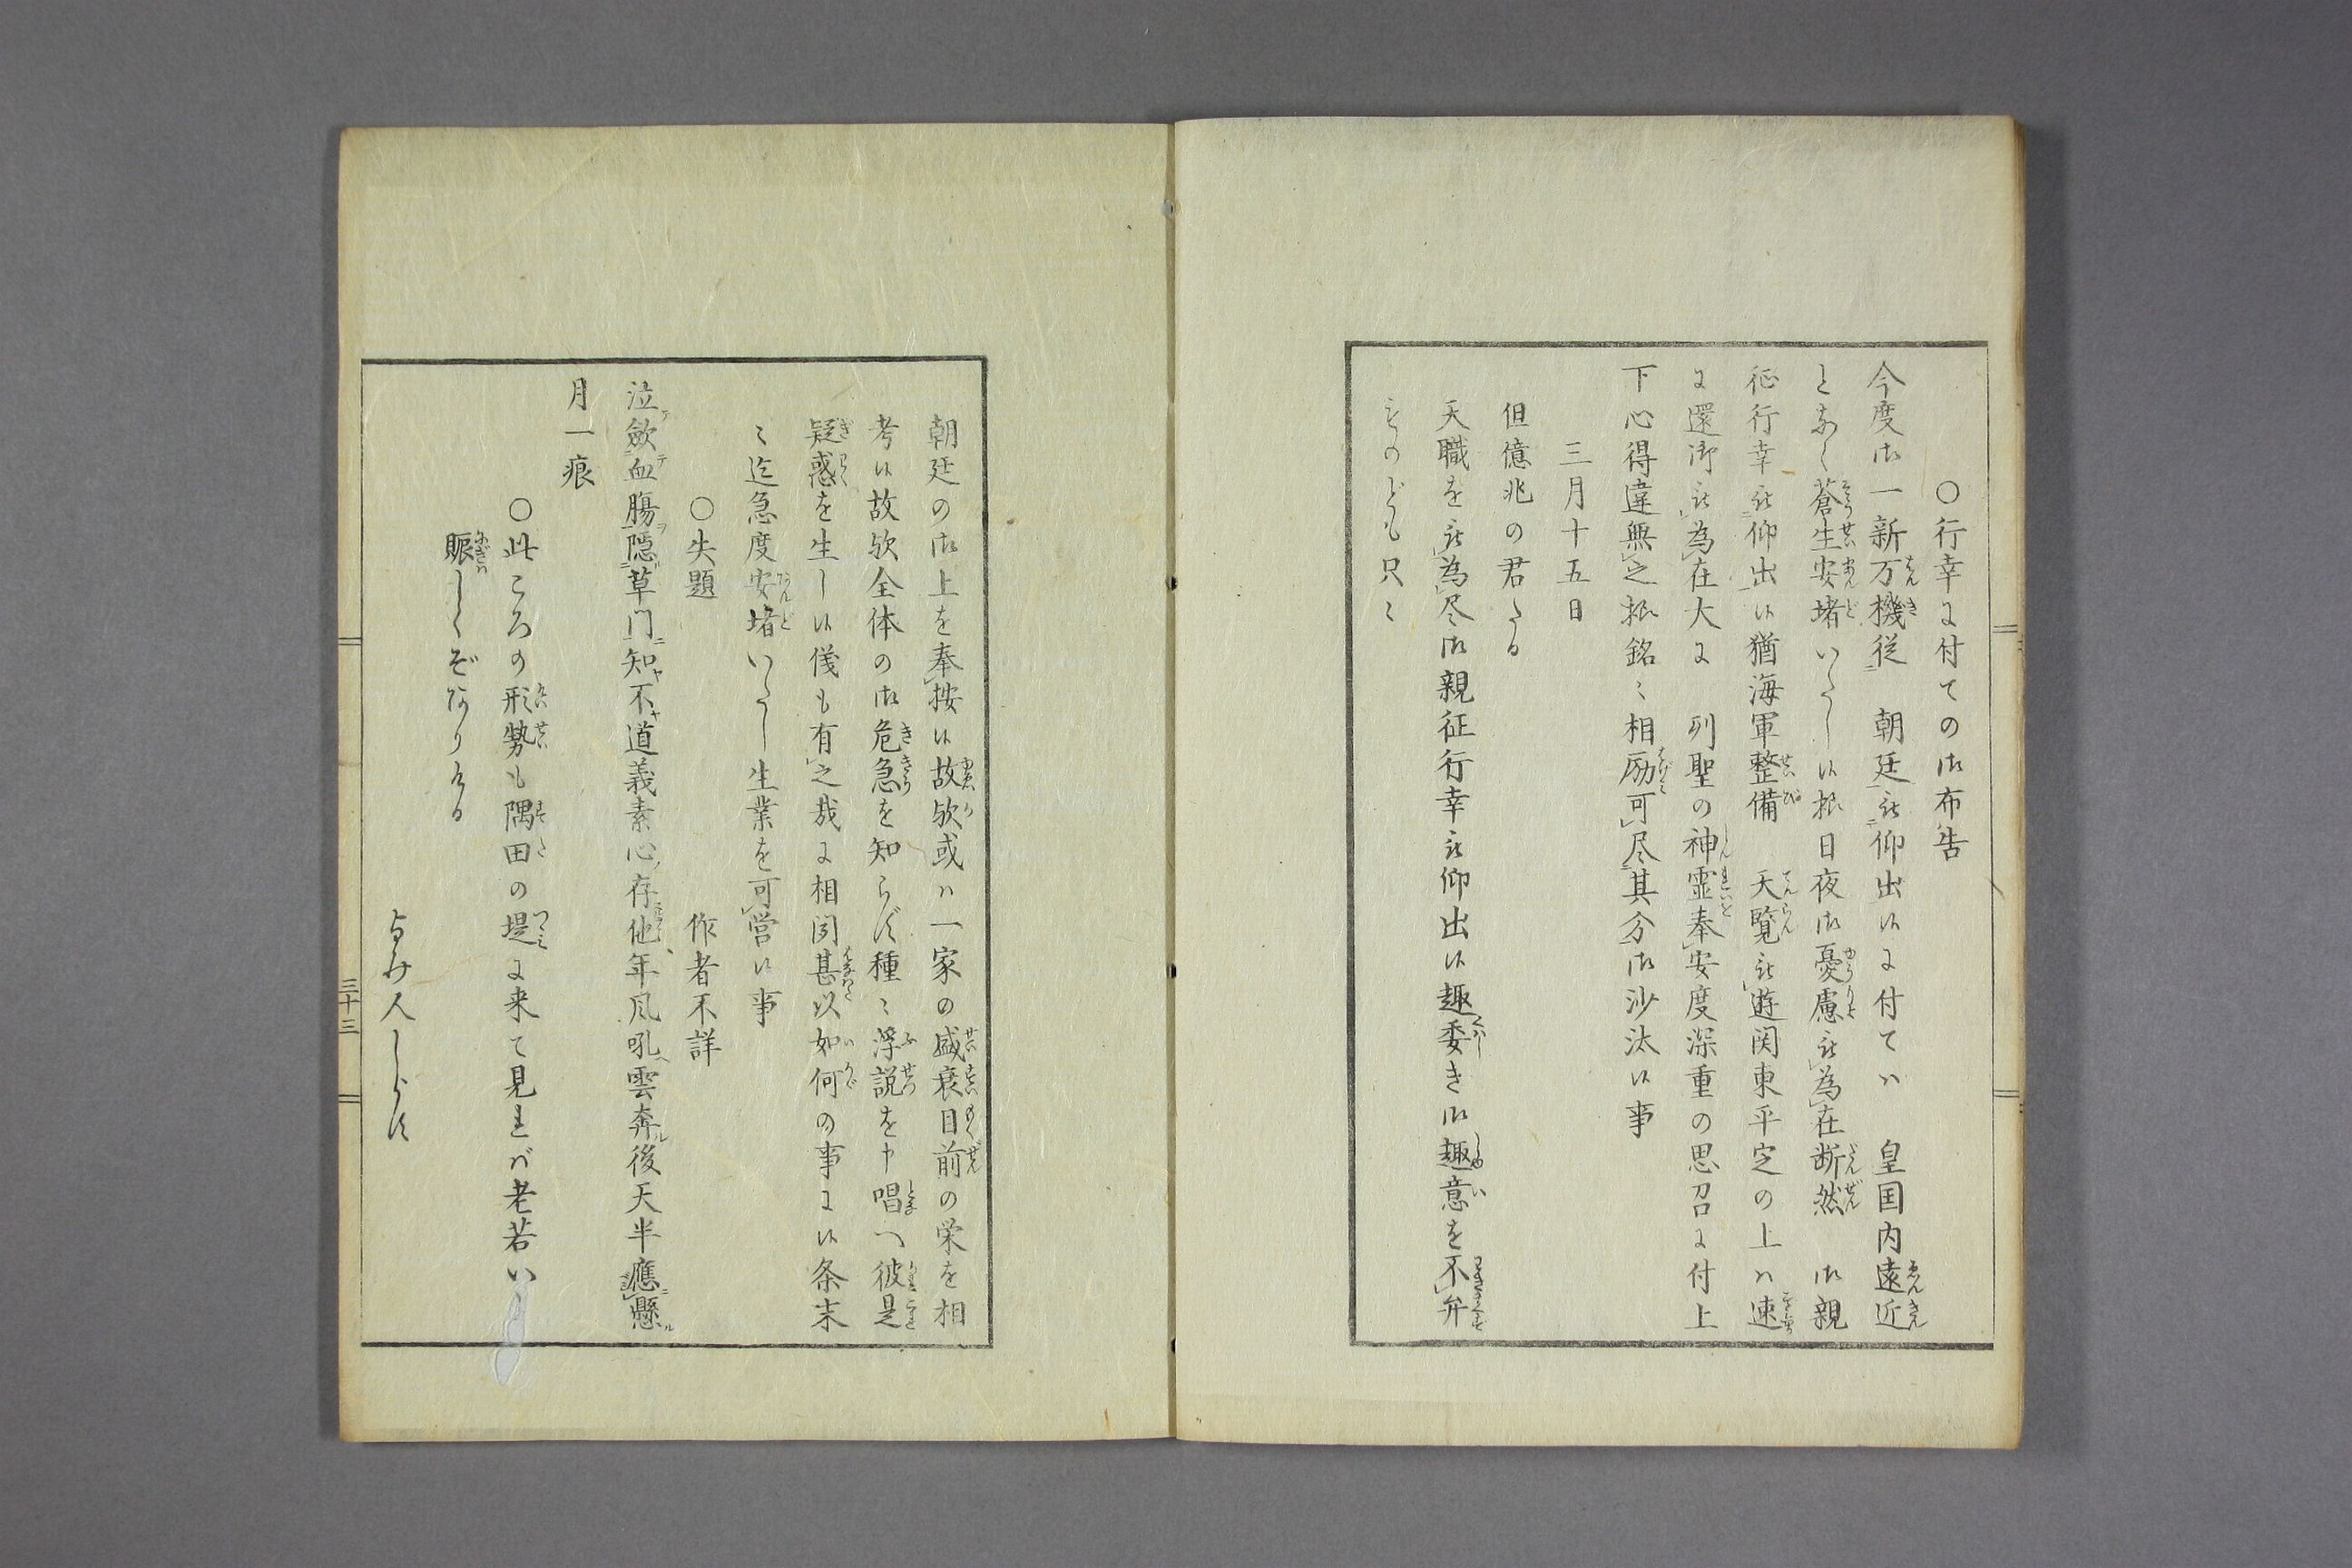 ○行幸に付ての御布告
今度御一新万機従　朝廷被仰出候に付てハ　皇国内遠近
となく蒼生安堵いたし候様日夜御憂慮被為在断然　御親
征行幸被仰出候猶海軍整備　天覧被遊関東平定の上ハ速
に還御被為在大に　列聖の神霊奉安度深重の思召に付上
下心得違無之様銘々相励可尽其分御沙汰候事
三月十五日
但億兆の君たる
天職を被為尽御親征行幸被仰出候趣委き御趣意を不弁
ものども只々
朝廷の御上を奉按候故欤或ハ一家の盛衰目前の栄を相
考候故欤全体の御危急を知らず種々浮説を申唱へ彼是
疑惑を生し候儀も有之哉に相聞甚以如何の事に候条末
々迄急度安堵いたし生業を可営候事
○失題　作者不詳
泣テ歃血テ腸ヲ隠草门ニ知ヤ不ヤ道義素心存他年風吼雲奔ル後天半應ニ懸ル
月一痕
○此ころの形勢も隅田の堤に来て見れバ老若い
賑しくぞなりける
よみ人しらす
三十三